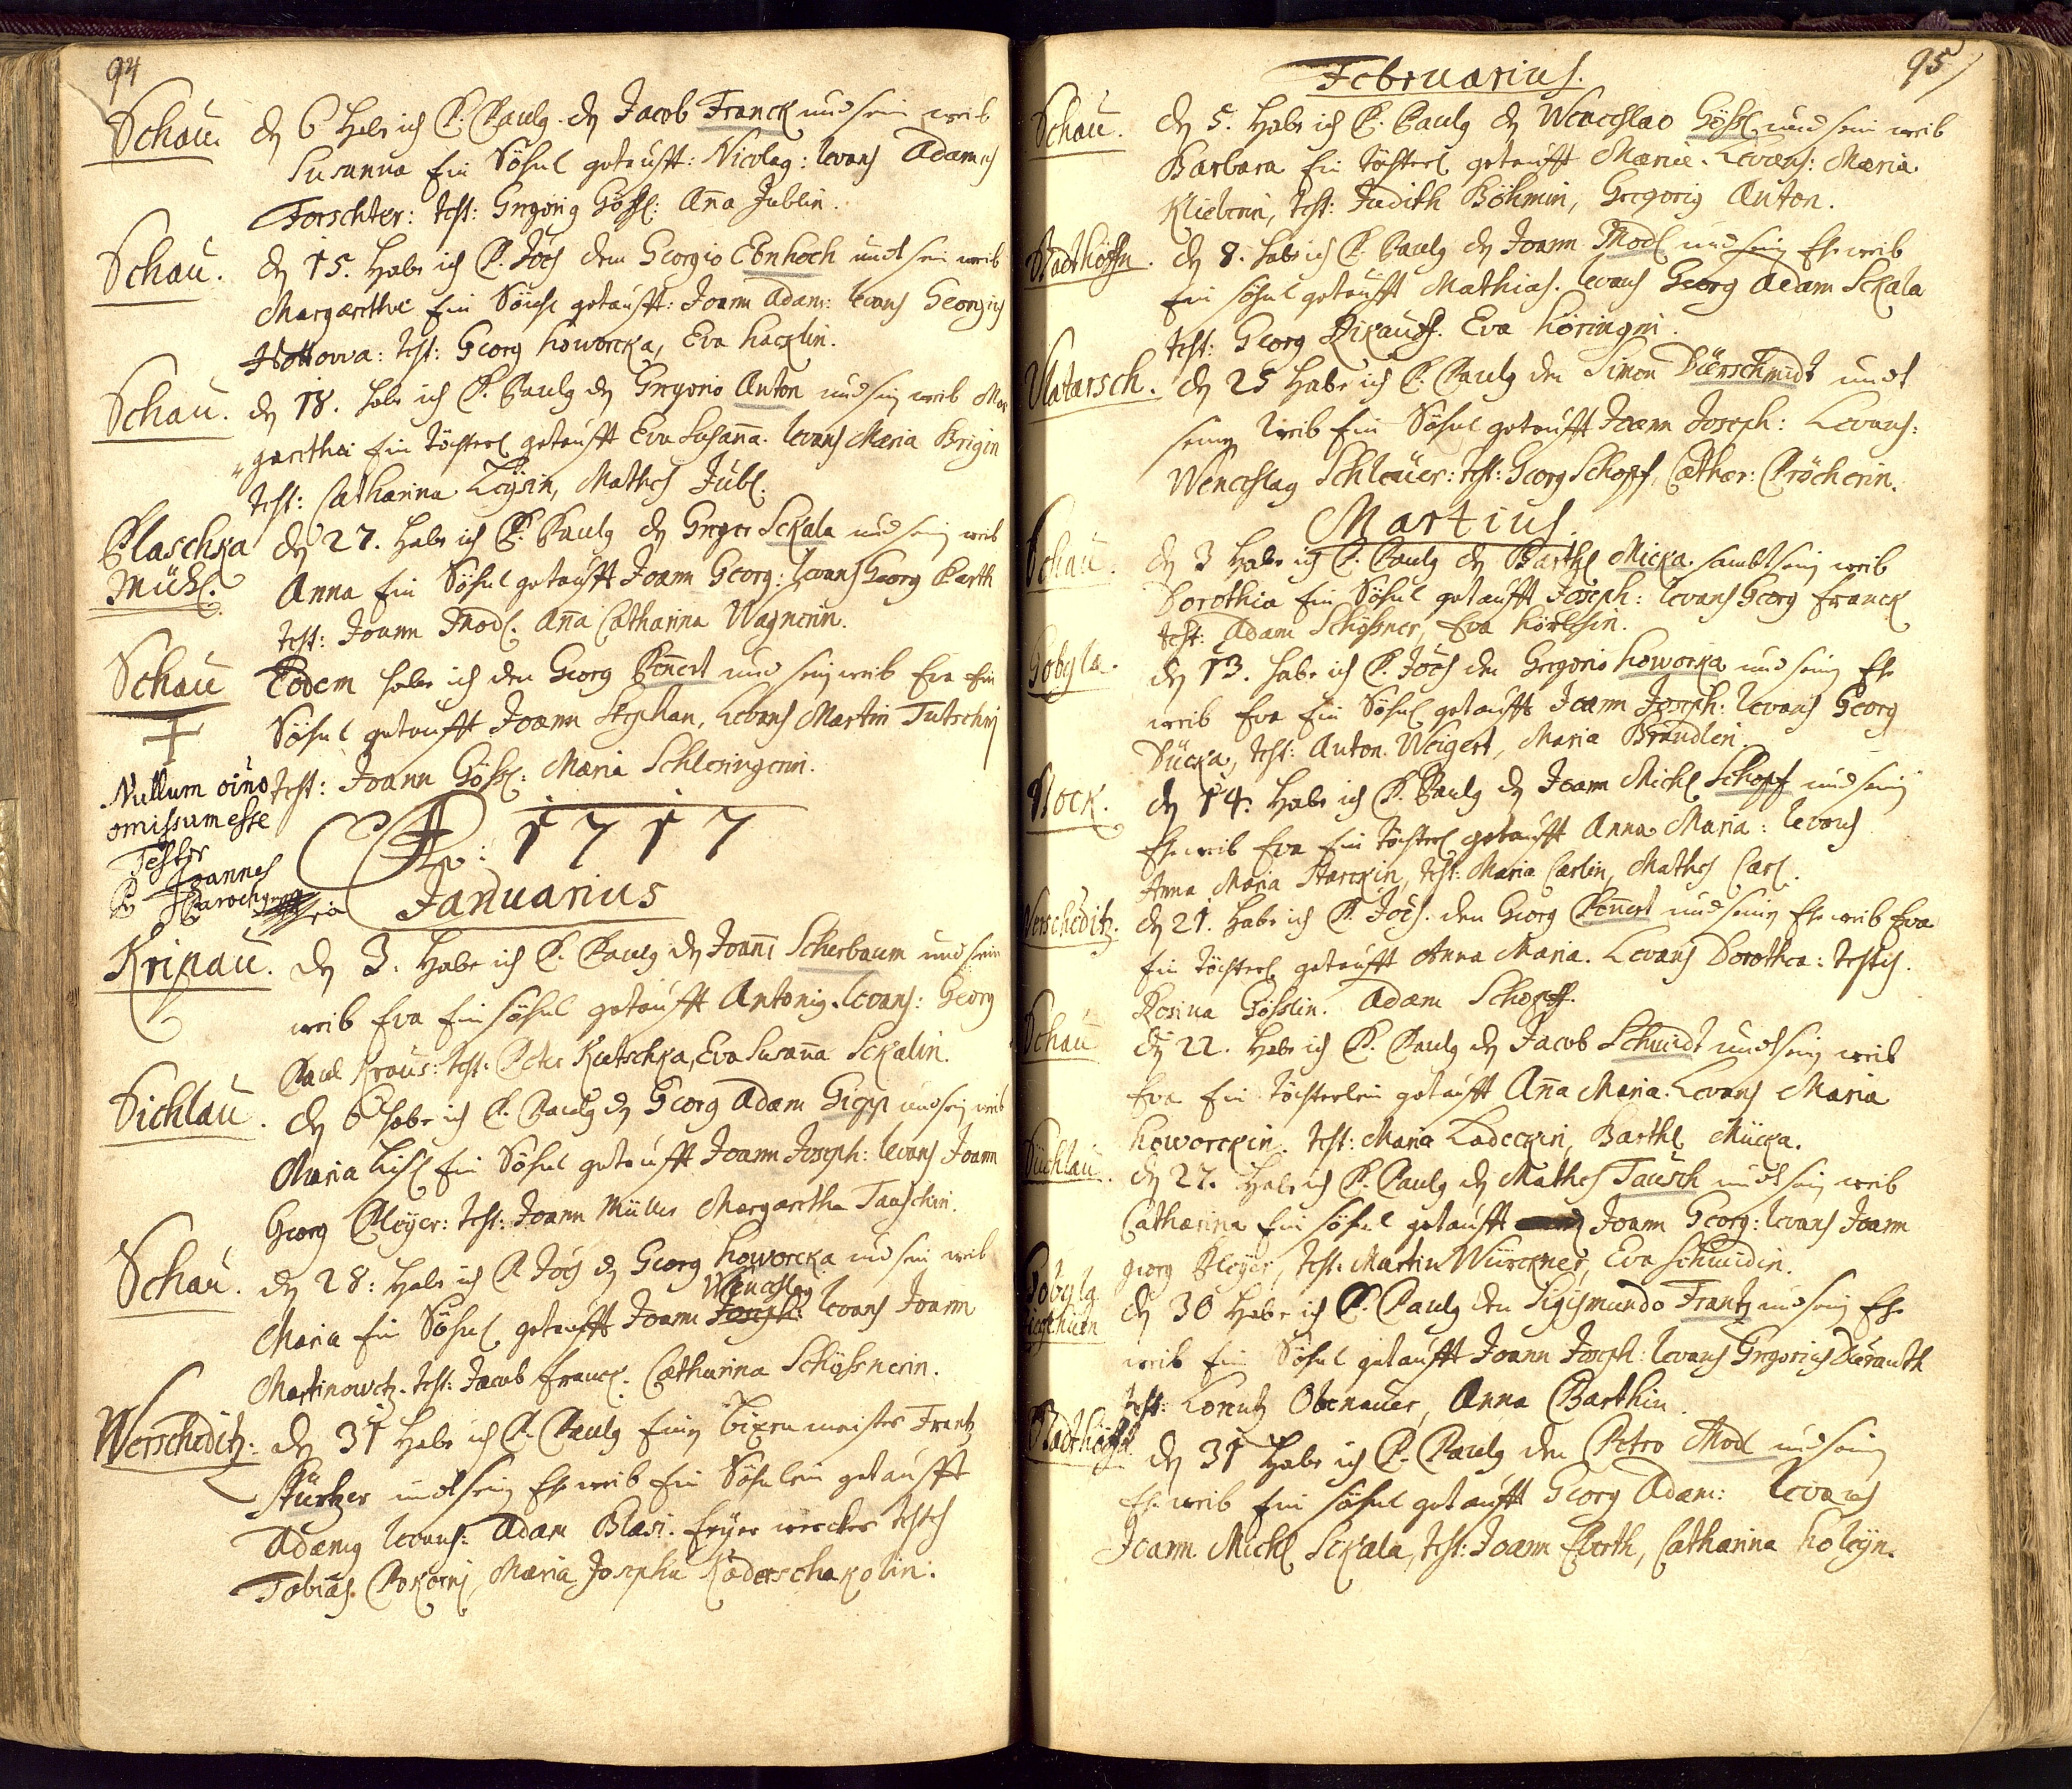 94
Schau. dn 6 Habe ich P. Paulg. dn Jacob Franck und sein weib
Susanna Ein Söhnl getaufft: Nicolag: levans Adamus
Forschter: test: Gregorig Gößl: Anna Jublin.
Schau. dn 15. Habe ich P. Joes dem Georgio Ebnhoch undt sein weib
Margarethae Ein Söhnl getaufft: Joann Adam: levans Georgius
Hottowa: test: Georg howorcka, Eva hacklin.
Schau. dn 18. habe ich P. Paulg dn Gregorio Anton und seiny weib Mar
garetha Ein töchterl getaufft Eva Susanna. levans Maria Brigin
test: Catharina Leysin, Mathes Jübl.
Plaschka dn 27. Habe ich P. Paulg dn Greger Sckala und seiny weib
Mühl. Anna Ein Söhnl getaufft Joann Georg: levans Georg Barth
test: Joann Thodl. Anna Catharina Wagnerin.
Schau Eodem habe ich den Georg Pennert und seiny weib Eva Ein
Söhnl getaufft Joann Stephan, Levans Martin Tutschny
test: Joann Gößl: Maria Schleringerin.
Nullum oino
omissum esse
Testor
Joannes
Parochg
A: 1717
Januarius
Kripau. dn 3. Habe ich P. Paulg dn Joanni Scherbaum und sein
weib Eva Ein söhnl getaufft Antonig. levans: Georg
Paul Kraus: test: Peter Kutschka, Eva Susanna Sckalin.
Sichlau. dn 6 habe ich P. Paulg dn Georg Adam Gipp und sein weib
Maria Lisl Ein Söhnl getaufft Joann Joseph: levans Joann
Georg Pleyer: test: Joann Müller Margaretha Tauschin.
Schau. dn 28: Habe ich P. Joes dn Georg howorcka und sein weib
Wenceslag
Maria Ein Söhnl getaufft Joann Joseph: levans Joann
Martinowetz. test: Jacob Franck. Catharina Schyßnerin.
Werscheditz. dn 31 Habe ich P. Paulg Einy Bixenmeister Frantz
Stürtzer undt seiny Eheweib Ein Söhnlein getaufft
Adamg levans: Adam Blasi. feyer wercker testes
Tobias Pokorni, Maria Josepha Kaderschakolin.
95
Februarius.
Schau. dn 5. Habe ich P. Paulg dn Wenceslao Gößl und sein weib
Barbara Ein töchterl getaufft Maria. Levans: Maria
Klieberin, test: Judith Böhmin, Gregorig Anton.
Stadthöffn. dn 8. habe ich P. Paulg dn Joann Thodl und seiny Eheweib
Ein söhnl getaufft Mathias. levans Georg Adam Sckala
test: Georg Pikauß. Eva höringin.
Matarsch. dn 25 Habe ich P. Paulg den Simon Dürschmidt undt
seiny Weib Ein Söhnl getaufft Joann Joseph: Levans:
Wenceslag Schleuer: test: Georg Schopf, Cathar: Pröcherin.
Martius.
Schau. dn 3 Habe ich P. Paulg dn Barthl Micka. sambt seiny weib
Dorothia Ein Söhnl getaufft Joseph: levans Georg Franck
test: Adam Schyßner, Eva hörlesin.
Gobyla. dn 13. habe ich P. Joes den Gregorio howorka und seiny Ehe
weib Eva Ein Söhnl getaufft Joann Joseph: levans Georg
Dücka, test: Anton Weigert, Maria Brandlin
Stock. dn 14. Habe ich P. Paulg dn Joann Michl Schopf und seiny
Eheweib Eva Ein töchterl getaufft Anna Maria: levans
Anna Maria Starckin, test: Maria Carlin, Mathes Carl.
Werscheditz. dn 21. Habe ich P. Joes. den Georg Pennert und seiny Eheweib Eva
Ein töchterl getaufft Anna Maria. Levans Dorothea: testes.
Rosina Gößlin. Adam Schopff.
Schau dn 22. Habe ich P. Paulg dn Jacob Schmidt undt seiny weib
Eva Ein töchterlein getaufft Anna Maria. Levans Maria
howorckin. test: Maria Ladeckin, Barthl Mücka.
Süchlau. dn 27. Habe ich P. Paulg dn Mathes Tausch undt seiny weib
Catharina Ein söhnl getaufft Joann Georg: levans Joann
georg Pleyer, test: Martin Würckner, Eva Schmidin.
Gobyla dn 30 Habe ich P. Paulg den Sigismundo Frantz und seiny Ehe
weib Ein Söhnl getaufft Joann Joseph: levans Gregorius Düranth
test: Lorentz Obenauer, Anna Barthin.
Stadthöffn. dn 31 Habe ich P. Paulg den Petro Thodl und seiny
Eheweib Ein söhnl getaufft Georg Adam: levans
Joann Michl Sckala, test: Joann Barth, Catharina holeyn.